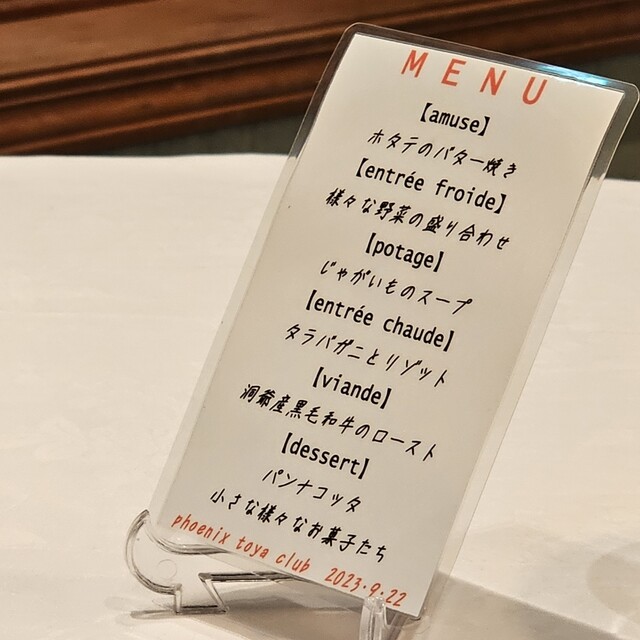 MENU
【amuse】
ホタテのバター焼き
【entrée froide】
様々な野菜の盛り合わせ
【potage】
じゃがいものスープ
【entrée chaude】
タラバガニとリゾット
【viande】
洞爺産黒毛和牛のロースト
【dessert】
パンナコッタ
小さな様々なお菓子たち
phoenix toya club 2023.9.22